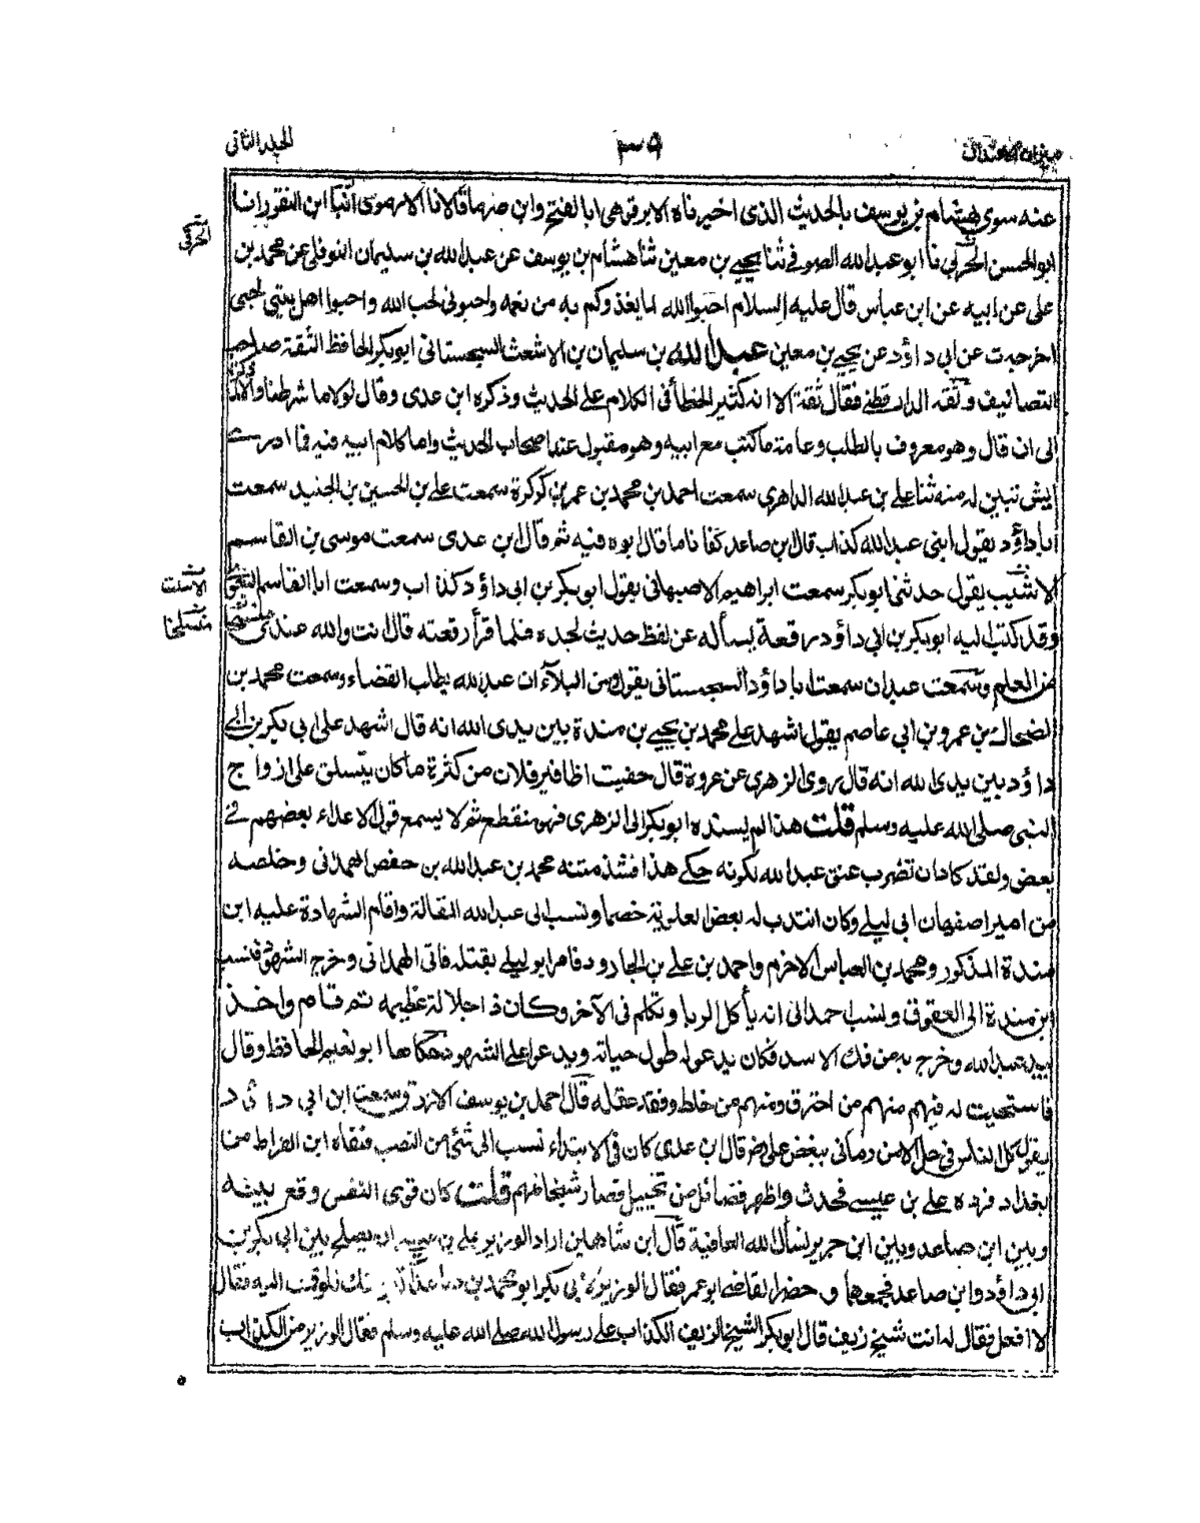 ميزان الاعتدال
٣٩
الجلد الثانى
عنه سوى هشام بن يوسف بالحديث الذى اخبرناه الابرقوهى ابا الفتح وابن صرما قالا انا الارموى انبا ابن النقور انا
ابو الحسن الحربى نا ابو عبد الله الصوفى ثنا يحيى بن معين ثنا هشام بن يوسف عن عبد الله بن سليمان النوفلى عن محمد بن
على عن ابيه عن ابن عباس قال عليه السلام احبوا الله لما يغذوكم به من نعمه واحبونى لحب الله واحبوا اهل بيتى لحبى
اخرجه ت عن ابى داؤد عن يحيى بن معين عبد الله بن سليمان بن الاشعث السجستانى ابو بكر الحافظ الثقة صاحب
التصانيف وثقه الدارقطنى فقال ثقة الا انه كثير الخطأ فى الكلام على الحديث وذكره ابن عدى وقال لولا ما شرطنا والا لما ذكرته
الى ان قال وهو معروف بالطلب وعامة ما كتب مع ابيه وهو مقبول عند اصحاب الحديث واما كلام ابيه فيه فما ادرى
ايش تبين له منه ثنا على بن عبد الله الداهرى سمعت احمد بن محمد بن عمر بن كوكرة سمعت على بن الحسين بن الجنيد سمعت
ابا داؤد يقول ابنى عبد الله كذاب قال بن صاعد كفانا ما قال ابوه فيه ثم قال ابن عدى سمعت موسى بن القاسم
الاشيب يقول حدثنى ابو بكر سمعت ابراهيم الاصبهانى يقول ابو بكر بن ابى داؤد كذاب وسمعت ابا القاسم البغوى
وقد كتب اليه ابو بكر بن ابى داؤد رقعة يسأله عن لفظ حديث لجده فلما قرأ رقعته قال انت والله عندى
من العلم وسمعت عبدان سمعت ابا داؤد السجستانى يقول ومن البلآء ان عبد الله يطلب القضاء وسمعت محمد بن
الضحاك بن عمرو بن ابى عاصم يقول اشهد على محمد بن يحيى بن مندة بين يدى الله انه قال اشهد على ابى بكر بن ابى
داؤد بين يدى الله انه قال روى الزهرى عن عروة قال حفيت اظافير فلان من كثرة ما كان يتسلق على ازواج
النبى صلى الله عليه وسلم قلت هذا لم يسنده ابو بكر الى الزهرى فهو منقطع ثم لا يسمع قول الاعداء بعضهم فى
بعض ولقد كاد ان تضرب عنق عبد الله لكونه حكى هذا فشذ متنه محمد بن عبد الله بن حفص الهمدانى وخلصه
من امير اصفهان ابى ليلى وكان انتدب له بعض العلوية خصما ونسب الى عبد الله المقالة واقام الشهادة عليه ابن
مندة المذكور ومحمد بن العباس الاخرم واحمد بن على بن الجارود فامر ابو ليلى بقتله فاتى الهمدانى وخرج الشهود فنسب
ابن مندة الى العقوق ونسب احمد الى انه يأكل الربا وتكلم فى الآخر وكان ذا جلالة عظيمه ثم قام واخذ
بيد عبد الله وخرج به من فك الاسد فكان يدعو له طول حياته ويدعو على الشهود حكاها ابو نعيم الحافظ وقال
فاستجيب له فيهم منهم من احترق ومنهم من خلط وفقد عقله قال احمد بن يوسف الازرق سمعت ابن ابى داؤد
يقول كل الناس فى حل الا من رمانى ببغض على رض قال بن عدى كان فى الابتداء نسب الى شئ من النصب فنفاه ابن الفراط من
بغداد فرده على بن عيسى فحدث واظهر فضائل من تحييل فصار شيخا فيهم قلت كان قوى النفس وقع بينه
وبين ابن صاعد وبين ابن جرير نسأل الله العافية قال ابن شاهين اراد الوزير على بن عيسى ان يصلح بين ابى بكر بن
ابى داؤد وابن صاعد فجمعهما وحضر القاضى ابو عمر فقال الوزير يا ابى بكر ابو محمد بن صاعد نلوقمت اليه فقال
لا افعل فقال له انت شيخ زيف قال ابو بكر الشيخ الزيف الكذاب على رسول الله صلى الله عليه وسلم فقال الوزير من الكذاب